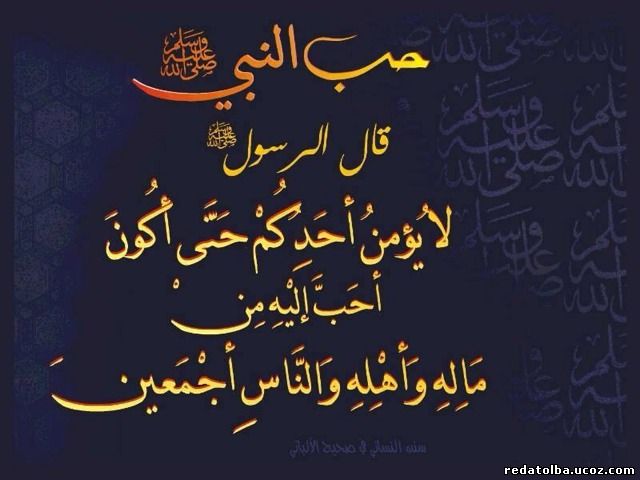 حب النبي ﷺ
قال الرسول ﷺ
لا يُؤمنُ أحَدُكُمْ حَتَّى أكُونَ
أحَبَّ إلَيْهِ مِنْ
مَالِهِ وَأهْلِهِ وَالنَّاسِ أجْمَعينَ
سنن النسائي في صحيح الألباني
redatolba.ucoz.com